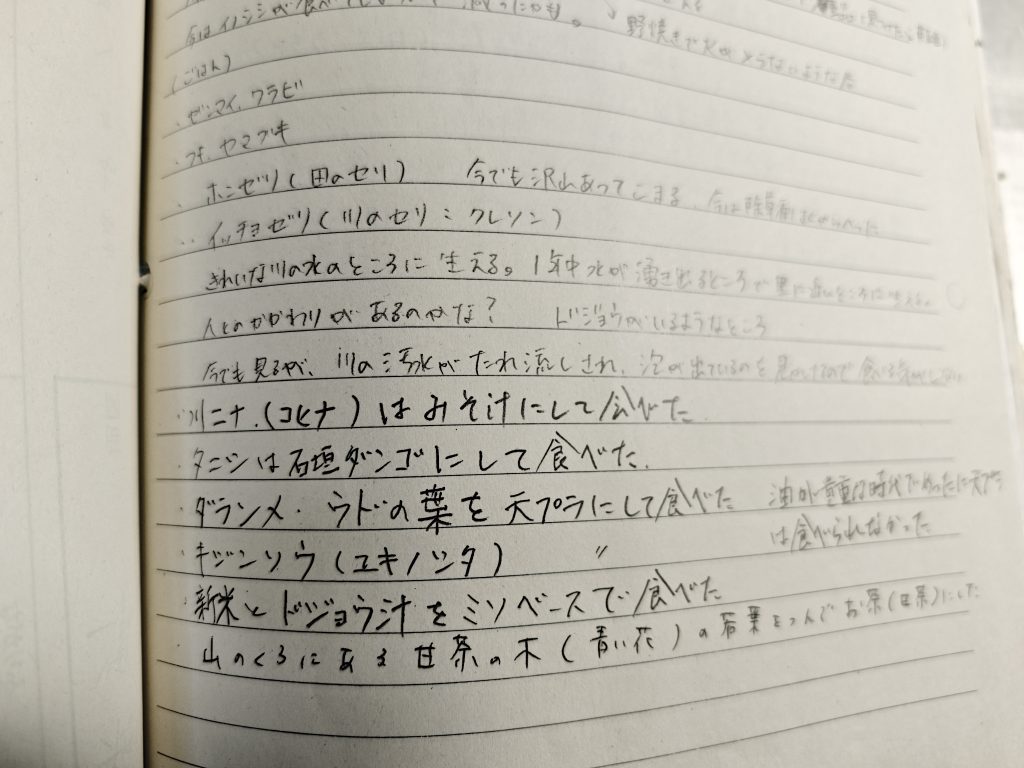 今はイノシシが食べて
野焼きで火が入らないような店
(ごはん)
・ゼンマイ、ワラビ
・フキ、ヤマブキ
・ホンゼリ(田のセリ) 今でも沢山あってこまる、今は除草剤
・・イッチョゼリ(川のセリ:クレソン)
きれいな川の水のところに生える。1年中水が湧き出るところで
人とのかかわりがあるのかな? ドジョウがいるようなところ
今でも見るが、川の汚水がたれ流しされ、泡が出ているのを見
・川ニナ(コヒナ)はみそ汁にして食べた
・タニシは石垣ダンゴにして食べた。
・ダランメ・ウドの葉を天プラにして食べた 油が貴重な時代でめったに天プラ
は食べられなかった
・キジンソウ(ユキノシタ) 〃
・新米とドジョウ汁をミソベースで食べた
山のくろにある甘茶の木(青い花)の若葉をつんでお茶(甘茶)にした